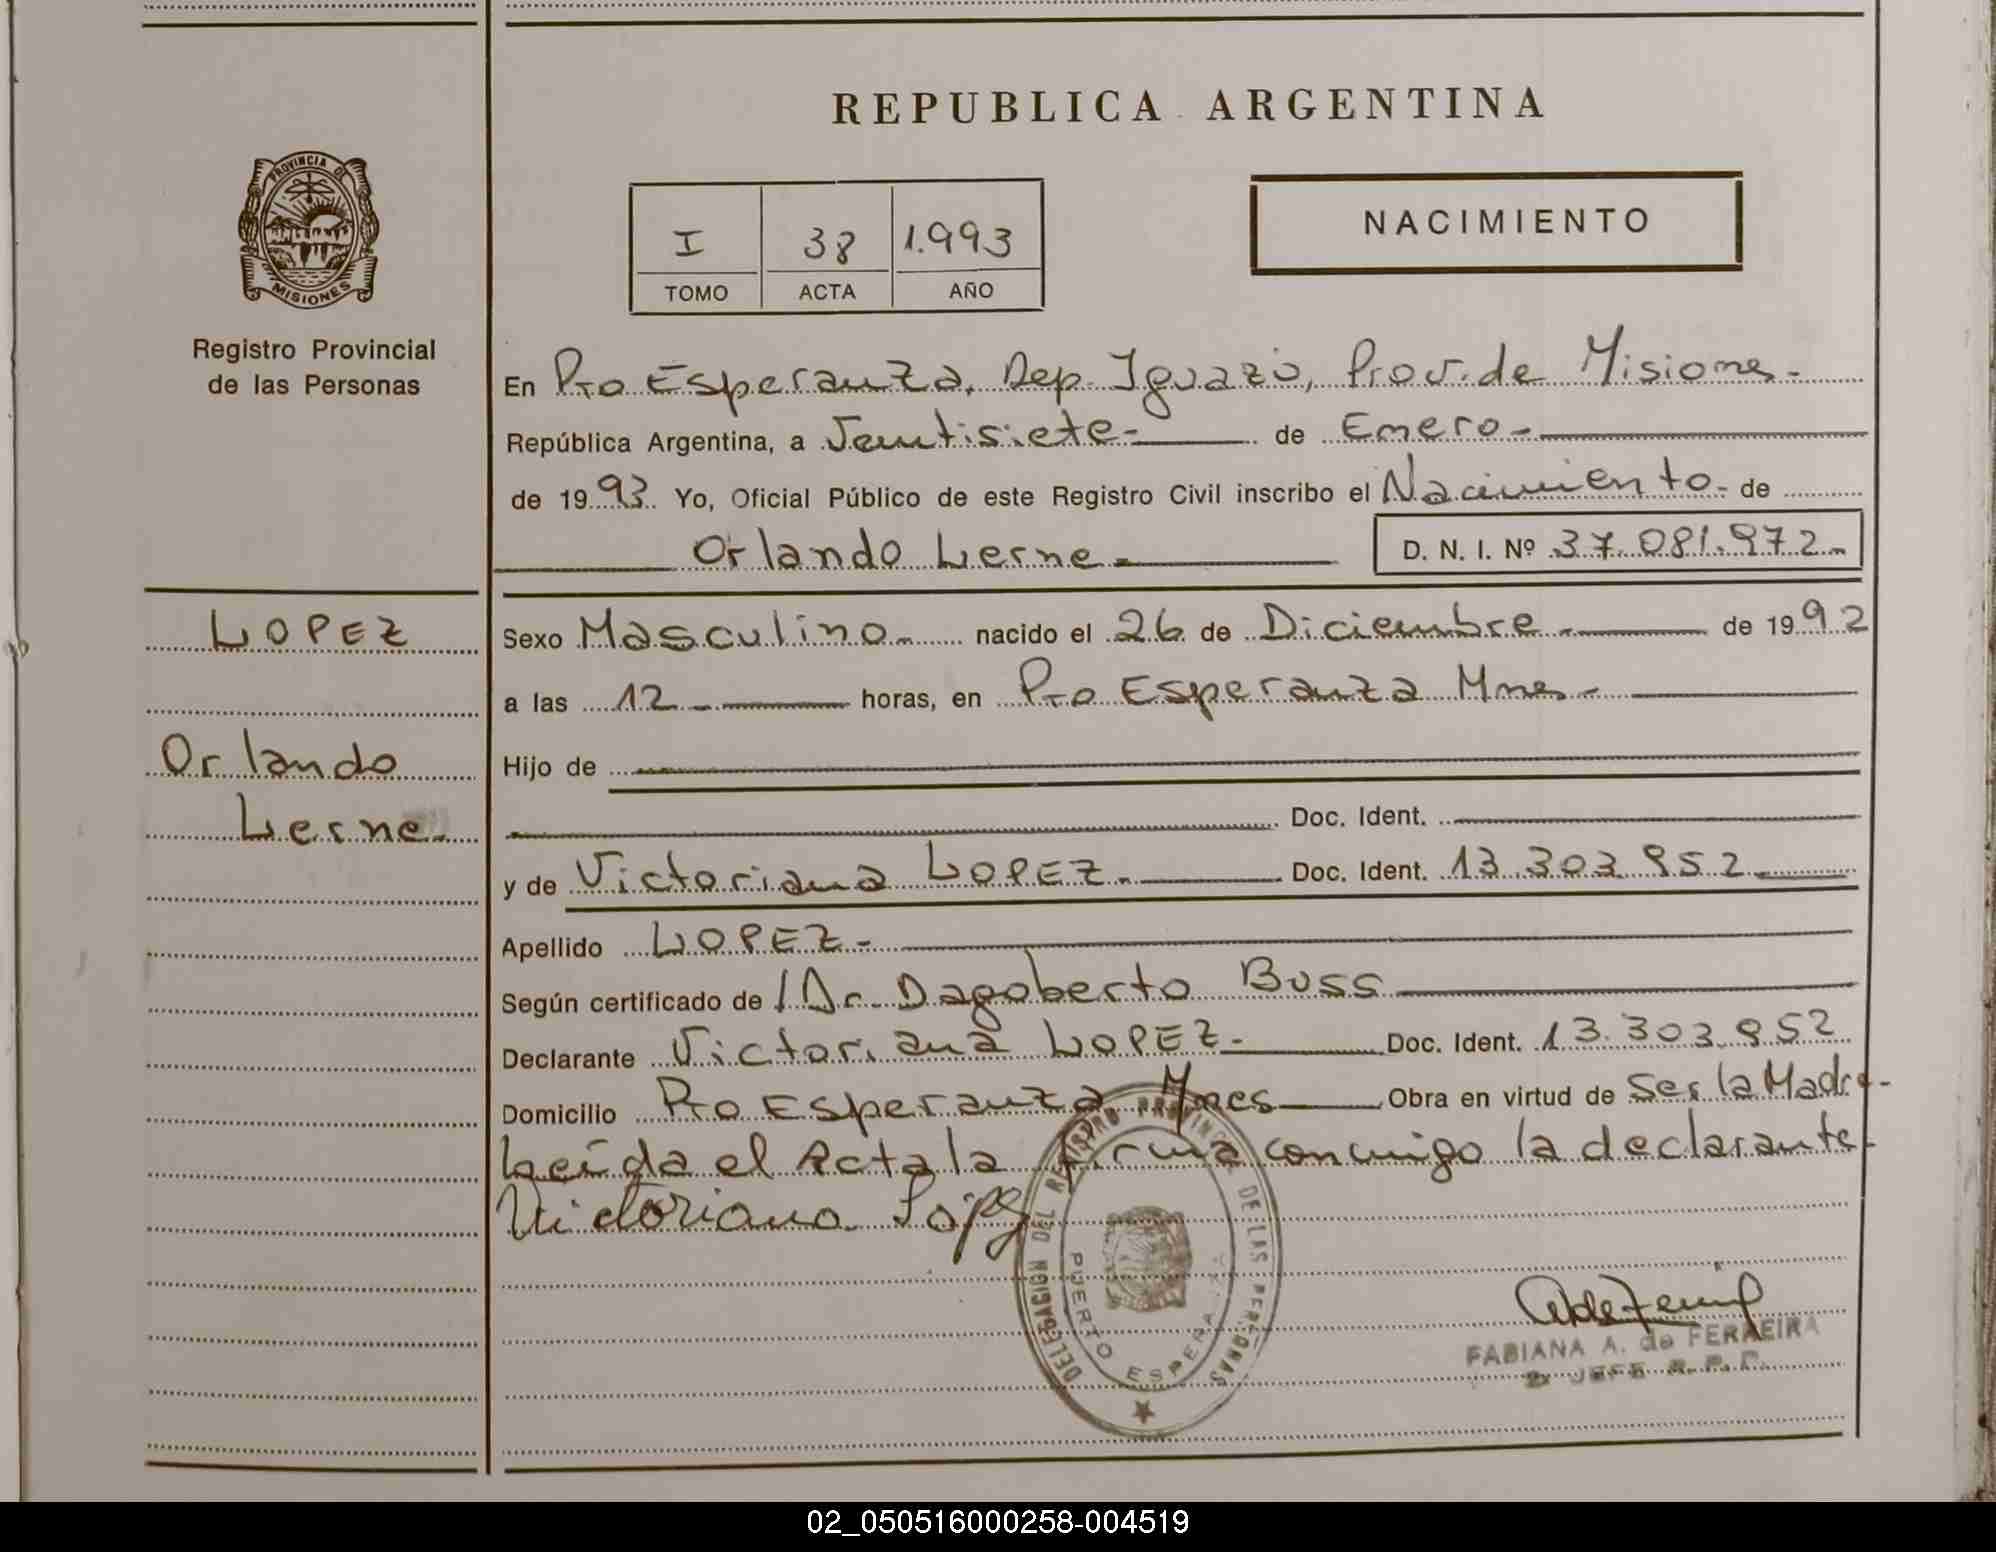 REPUBLICA ARGENTINA
PROVINCIA DE
MISIONES
Registro Provincial
de las Personas
I 38 1.993
TOMO ACTA AÑO
NACIMIENTO
En Pto Esperanza, Dep. Iguazú, Prov. de Misiones.-
República Argentina, a Ventisiete.- de Enero.-
de 1993. Yo, Oficial Público de este Registro Civil inscribo el Nacimiento.- de
Orlando Lerne.- D. N. I. Nº 37.081.972.-
LOPEZ
Orlando
Lerne.-
Sexo Masculino.- nacido el 26 de Diciembre.- de 1992
a las 12.- horas, en Pto Esperanza Mnes.-
Hijo de
Doc. Ident.
y de Victoriana LOPEZ.- Doc. Ident. 13.303.952.-
Apellido LOPEZ.-
Según certificado de / Dr. Dagoberto Buss
Declarante Victoriana LOPEZ.- Doc. Ident. 13.303.952
Domicilio Pto Esperanza Mnes Obra en virtud de Ser la Madre.-
Leída el Acta la firma conmigo la declarante.-
Victoriana Lopez
DELEGACION DEL REGISTRO PROVINC. DE LAS PERSONAS
PUERTO ESPERANZA
FABIANA A. de FERREIRA
JEFE R. P. P.
02_050516000258-004519